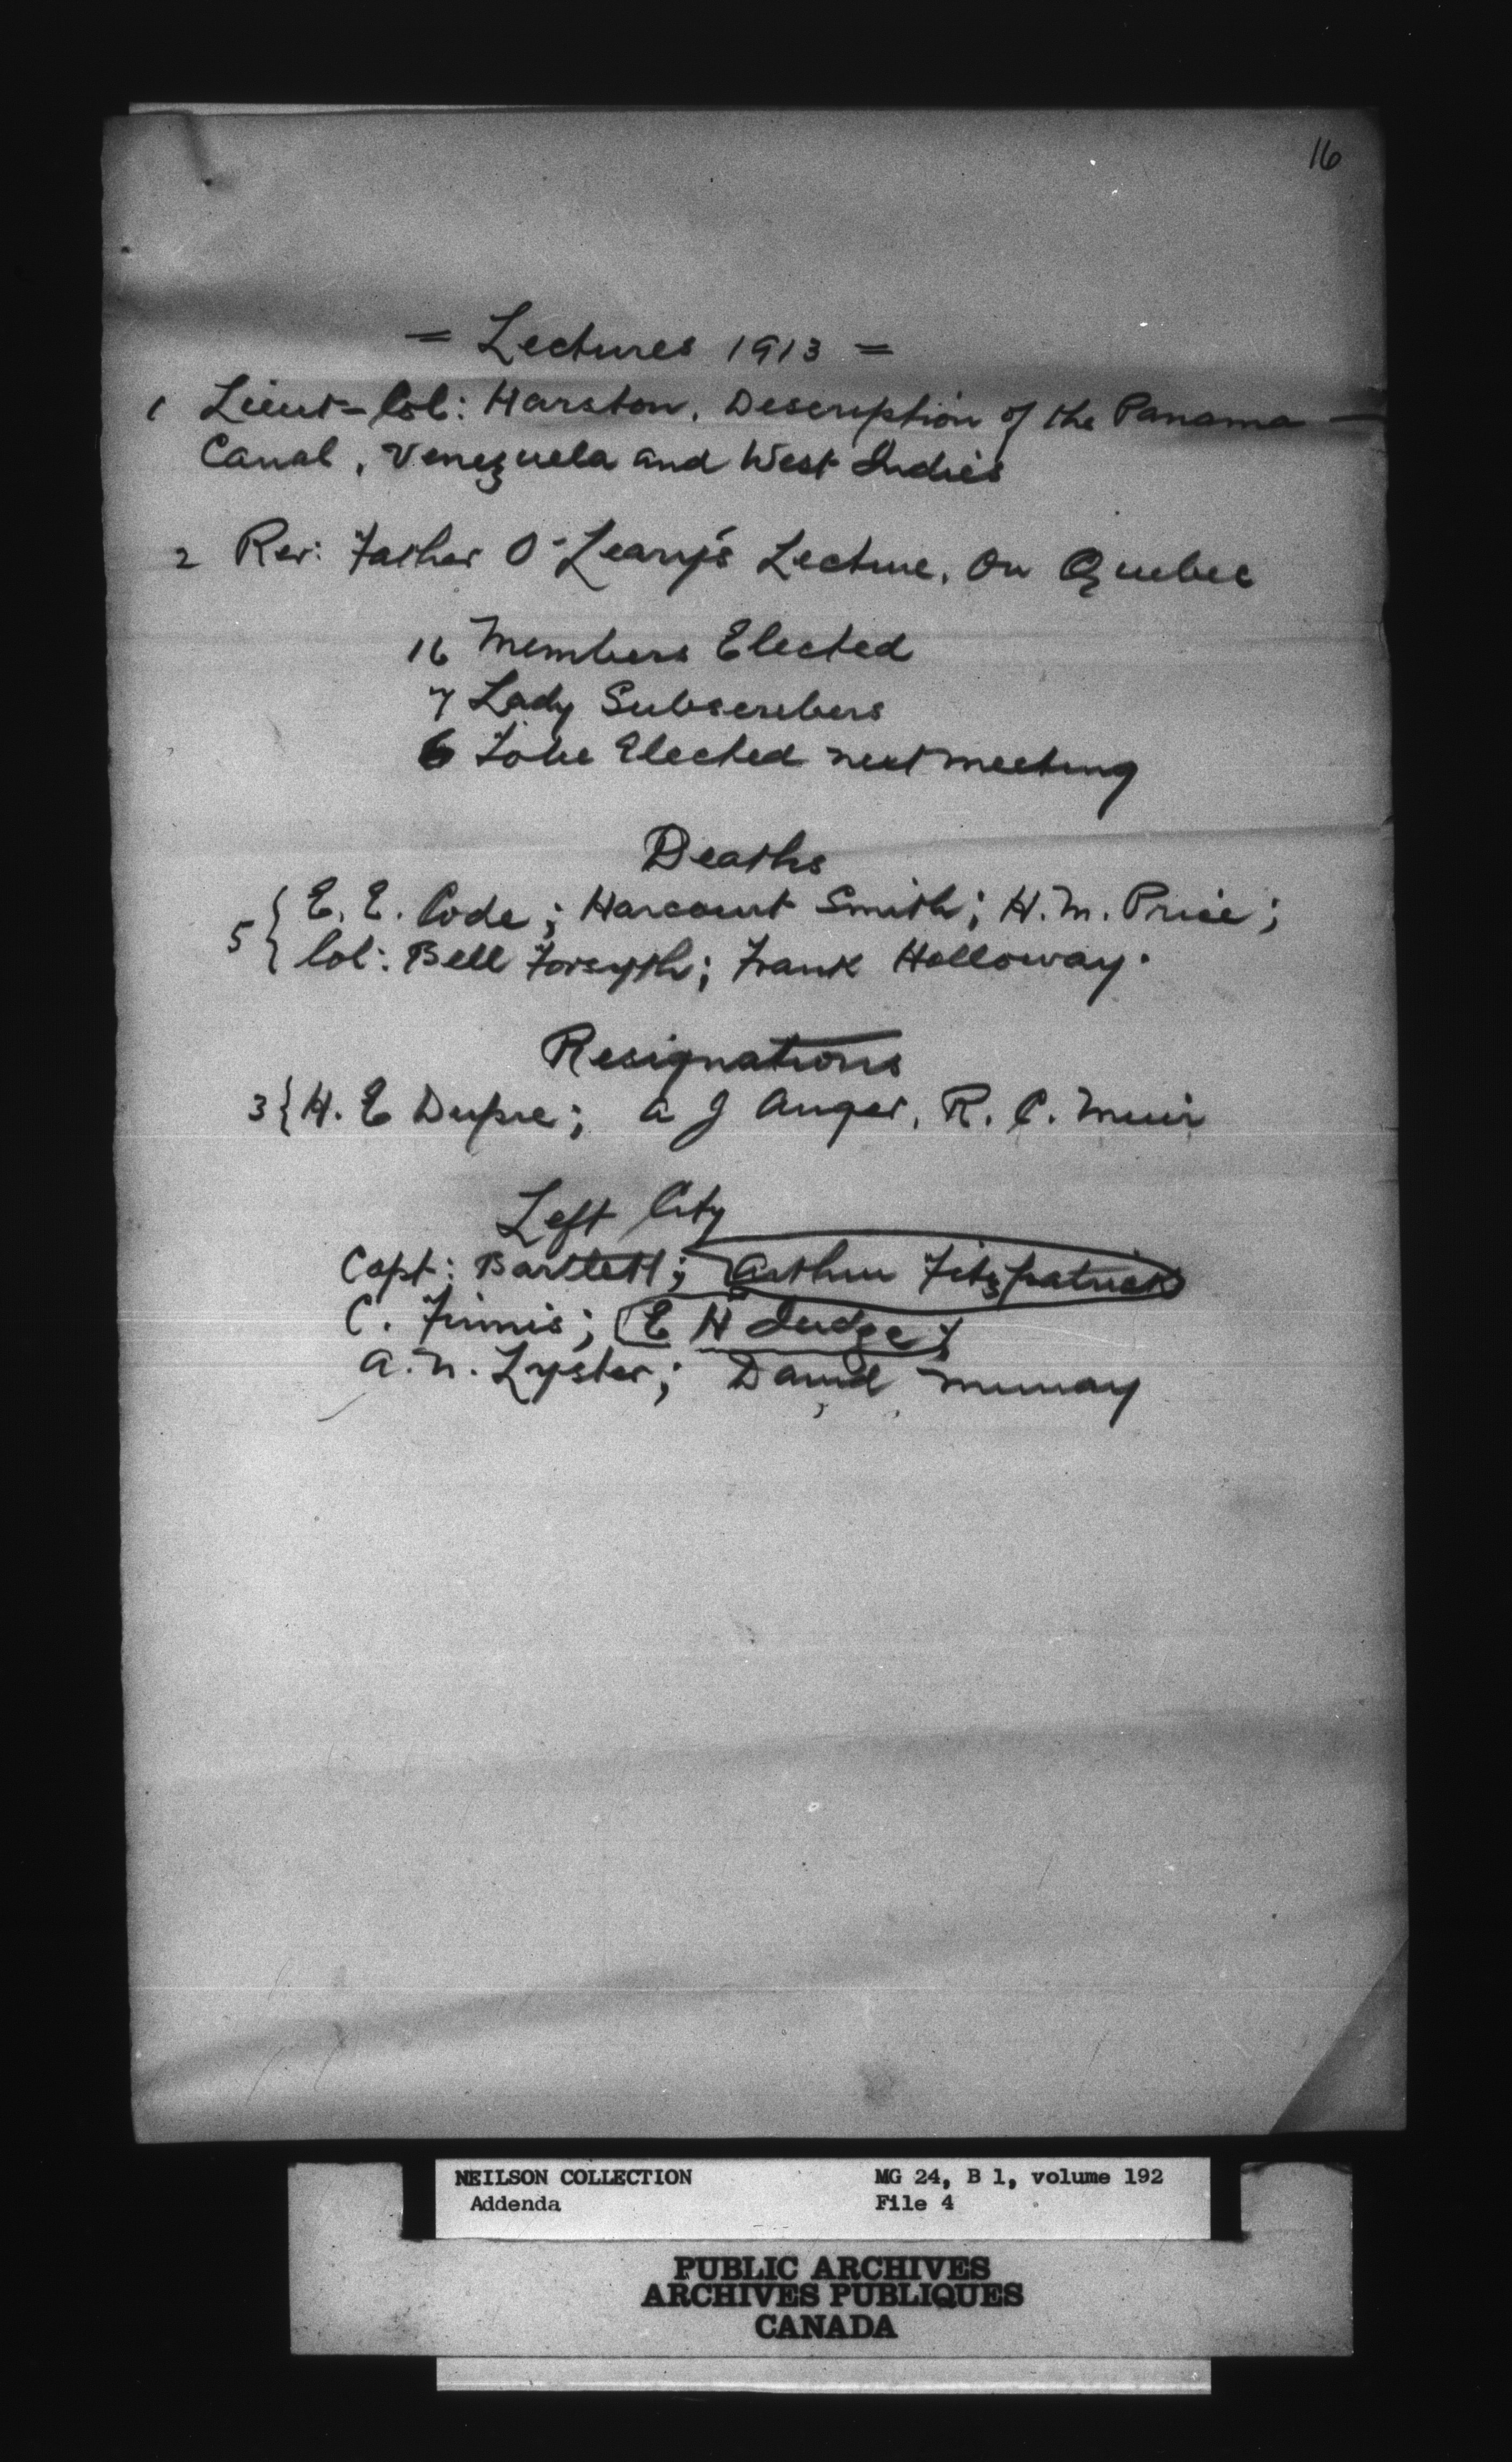 16
= Lectures 1913 =
1 Lieut-Col: Harston. Description of the Panama -
Canal, Venezuela and West Indies
2 Rev: Father O'Leary's Lecture. On Quebec
16 Members Elected
7 Lady Subscribers
6 To be Elected next meeting
Deaths
5 { E. E. Code; Harcourt Smith; H. M. Price;
Col: Bell Forsyth; Frank Holloway.
Resignations
3 { H. E Dupre; A J Auger, R. C. Muir
Left City
Capt: Bartlett; Arthur Fitzpatrick
C. Finnis; E H Judge;
A. N. Lyster; David Murray
NEILSON COLLECTION MG 24, B 1, volume 192
Addenda File 4
PUBLIC ARCHIVES
ARCHIVES PUBLIQUES
CANADA